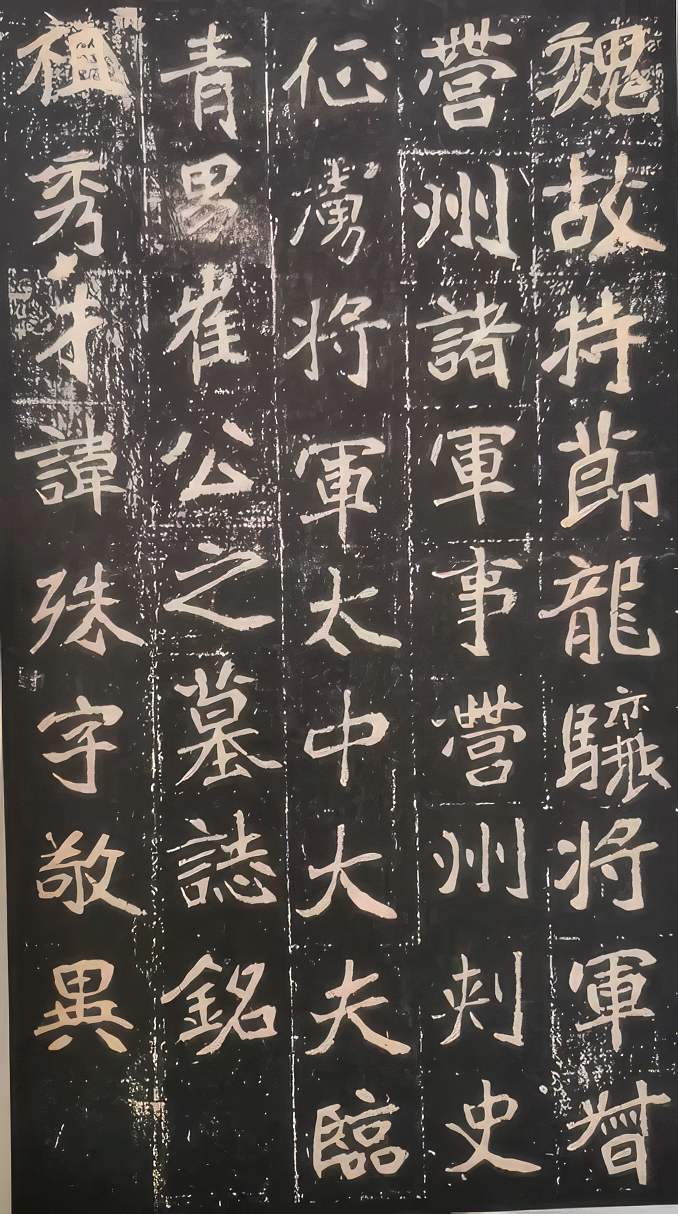 魏故持節龍驤將軍督
營州諸軍事營州刺史
征虜將軍太中大夫臨
青男崔公之墓誌銘
祖秀才諱殊字敬異